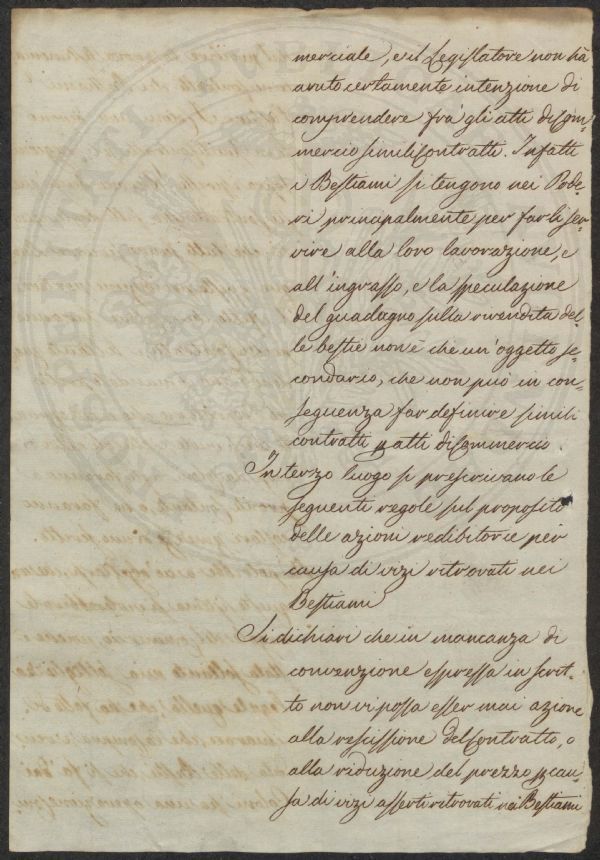 merciale, e il Legislatore non hà
avuto certamente intenzione di
comprendere frà gli atti di Com=
mercio simili Contratti. Infatti
i Bestiami si tengono nei Pode=
ri principalmente per farli ser=
vire alla loro lavorazione, e
all'ingrasso, e la speculazione
del guadagno sulla rivendita del=
le bestie non è che un'oggetto se=
condario, che non può in con=
seguenza far definire simili
contratti p atti di Commercio.
In terzo luogo si prescrivano le
seguenti regole sul proposito
delle azioni redibitorie per
causa di vizi ritrovati nei
Bestiami
Si dichiari che in mancanza di
convenzione espressa in scrit=
to non vi possa esser mai azione
alla rescissione del Contratto, o
alla riduzione del prezzo p cau=
sa di vizi asserti ritrovati nei Bestiami